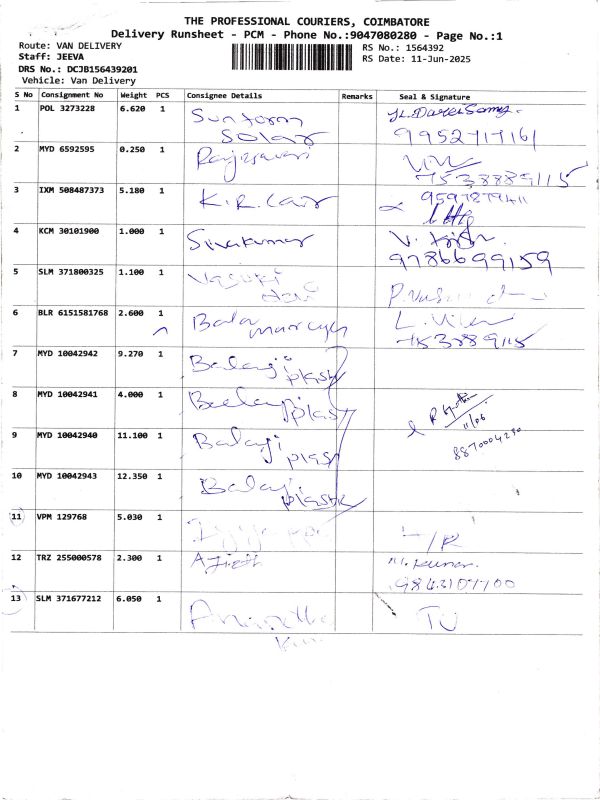 THE PROFESSIONAL COURIERS, COIMBATORE
Delivery Runsheet - PCM - Phone No.:9047080280 - Page No.:1
Route: VAN DELIVERY
RS No.: 1564392
Staff: JEEVA
RS Date: 11-Jun-2025
DRS No.: DCJB156439201
Vehicle: Van Delivery
S No Consignment No Weight PCS Consignee Details Remarks Seal & Signature
1 POL 3273228 6.620 1 Suntorn Solar
9952717161
2 MYD 6592595 0.250 1 Rajeswari
7538889115
3 IXM 508487373 5.180 1 K.R.
9597279411
4 KCM 30101900 1.000 1 Sivakumar V.
9786699159
5 SLM 371800325 1.100 1 Vasuki devi
6 BLR 6151581768 2.600 1 Bala
7 MYD 10042942 9.270 1 Balaji plast
8 MYD 10042941 4.000 1 Balaji plast
11/06
9 MYD 10042940 11.100 1 Balaji plast
10 MYD 10042943 12.350 1 Balaji plastic
11 VPM 129768 5.030 1
12 TRZ 255000578 2.300 1 Ajith Kumar
9843107700
13 SLM 371677212 6.050 1